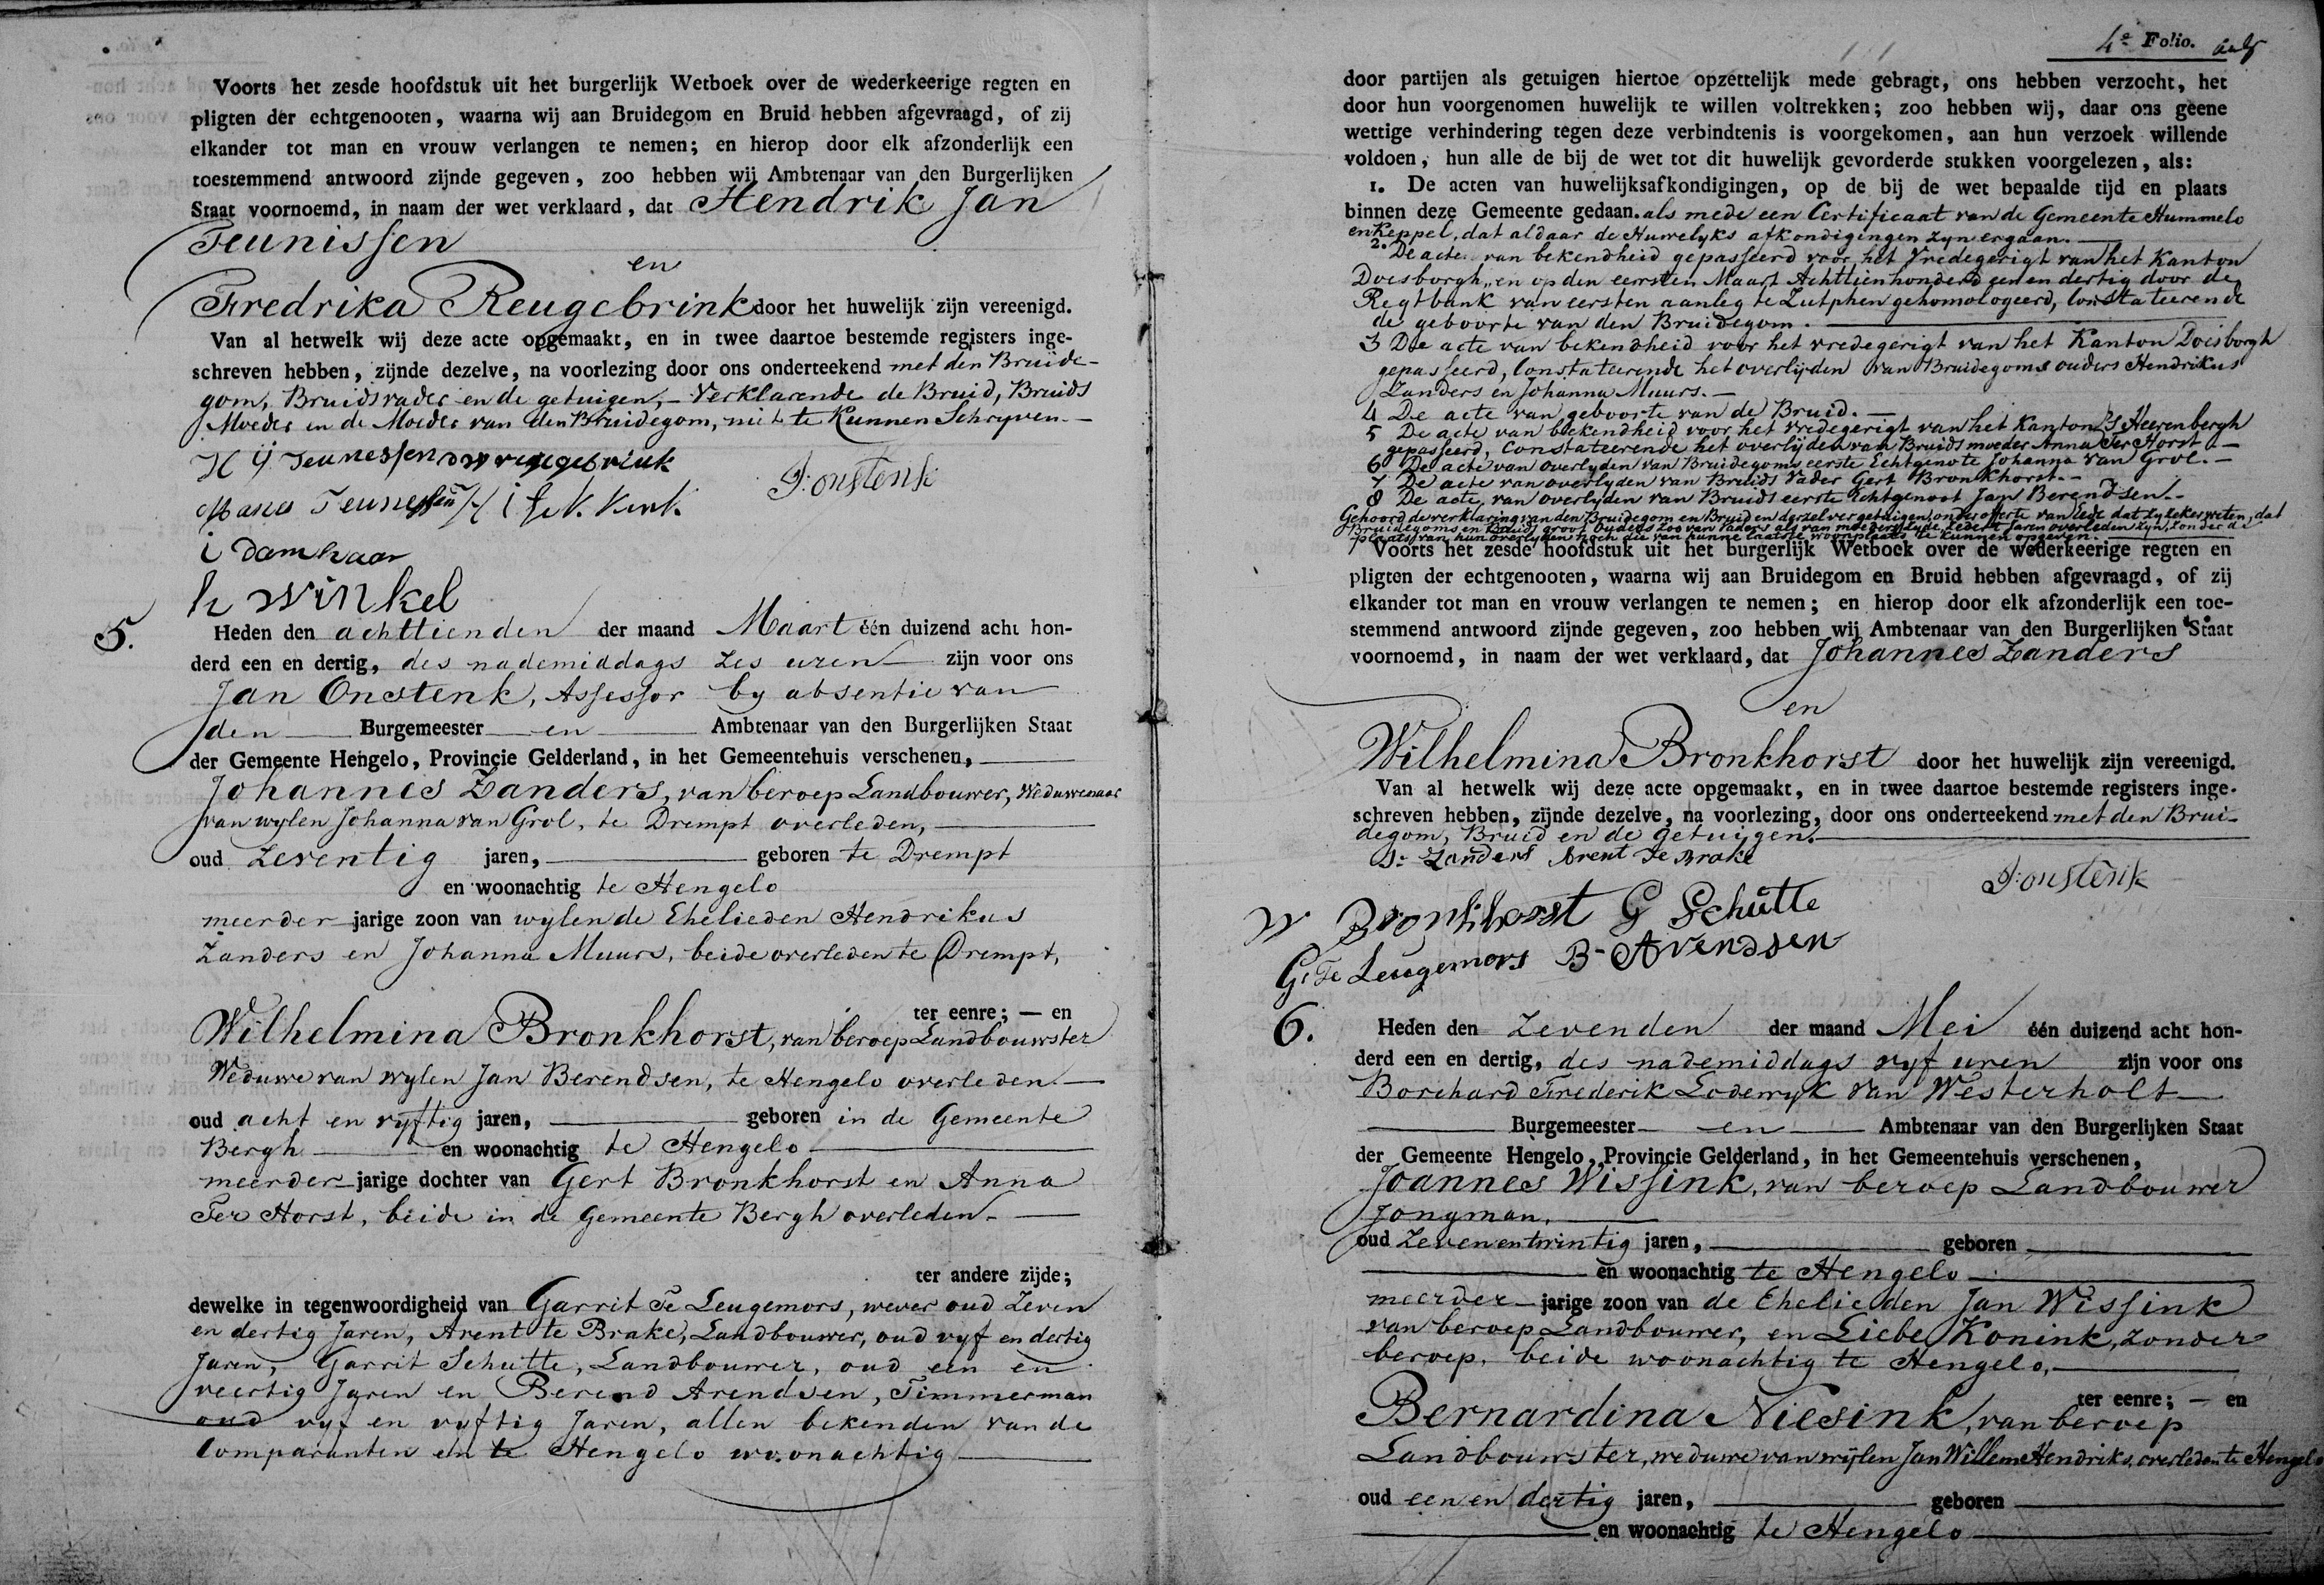 Voorts het zesde hoofdstuk uit het burgerlijk Wetboek over de wederkeerige regten en
pligten der echtgenooten, waarna wij aan Bruidegom en Bruid hebben afgevraagd, of zij
elkander tot man en vrouw verlangen te nemen; en hierop door elk afzonderlijk een
toestemmend antwoord zijnde gegeven, zoo hebben wij Ambtenaar van den Burgerlijken
Staat voornoemd, in naam der wet verklaard, dat Hendrik Jan
Teunissen
en
Fredrika Reugebrink door het huwelijk zijn vereenigd.
Van al hetwelk wij deze acte opgemaakt, en in twee daartoe bestemde registers inge-
schreven hebben, zijnde dezelve, na voorlezing door ons onderteekend met den Bruide-
gom, Bruidsvader en de getuigen,- Verklarende de Bruid, Bruids
Moeder en de Moeder van den Bruidegom, niet te Kunnen Schryven.-
H J Teunessen
J: Onstenk
Manes Teunessen
i damhaar
h winkel
5.
Heden den achttienden der maand Maart één duizend acht hon-
derd een en dertig, des nademiddags Zes uren zijn voor ons
Jan Onstenk, Assessor by absentie van
den Burgemeester en Ambtenaar van den Burgerlijken Staat
der Gemeente Hengelo, Provincie Gelderland, in het Gemeentehuis verschenen,
Johannes Zanders, van beroep Landbouwer, Weduwenaar
van wylen Johanna van Grol, te Drempt overleden,
oud Zeventig jaren, geboren te Drempt
en woonachtig te Hengelo
meerder jarige zoon van wylen de Ehelieden Hendrikus
Zanders en Johanna Muurs, beide overleden te Drempt,
ter eenre; — en
Wilhelmina Bronkhorst, van beroep Landbouwster
Weduwe van wylen Jan Berendsen, te Hengelo overleden.
oud acht en vyftig jaren, geboren in de Gemeente
Bergh en woonachtig te Hengelo
meerder jarige dochter van Gert Bronkhorst en Anna
Ter Horst, beide in de Gemeente Bergh overleden.
ter andere zijde;
dewelke in tegenwoordigheid van Garrit Te Leugemors, wever oud Zeven
en dertig Jaren, Arent te Brake, Landbouwer, oud vyf en dertig
Jaren, Garrit Schutte, Landbouwer, oud een en
veertig Jaren en Berend Arendsen, Timmerman
oud vyf en vyftig Jaren, allen bekenden van de
Comparanten en te Hengelo woonachtig
4e Folio.
door partijen als getuigen hiertoe opzettelijk mede gebragt, ons hebben verzocht, het
door hun voorgenomen huwelijk te willen voltrekken; zoo hebben wij, daar ons geene
wettige verhindering tegen deze verbindtenis is voorgekomen, aan hun verzoek willende
voldoen, hun alle de bij de wet tot dit huwelijk gevorderde stukken voorgelezen, als:
1. De acten van huwelijksafkondigingen, op de bij de wet bepaalde tijd en plaats
binnen deze Gemeente gedaan. als mede een Certificaat van de Gemeente Hummelo
en Keppel, dat aldaar de Huwelyks afkondigingen zyn ergaan.
2. De acte van bekendheid gepasseerd voor het Vredegerigt van het Kanton
Doesborgh, en op den eersten Maart Achttienhonderd een en dertig door de
Regtbank van eersten aanleg te Zutphen gehomologeerd, Constateerende
de geboorte van den Bruidegom.
3 De acte van bekendheid voor het vredegerigt van het Kanton Doisborgh
gepasseerd, Constateerende het overlijden van Bruidegoms ouders Hendrikus
Zanders en Johanna Muurs.-
4 De acte van geboorte van de Bruid.-
5 De acte van bekendheid voor het vredegerigt van het Kanton 's Heerenbergh
gepasseerd, Constateerende het overlijden van Bruids moeder Anna Ter Horst -
6 De acte van overlyden van Bruidegoms eerste Echtgenote Johanna van Grol.-
7 De acte van overlyden van Bruids Vader Gert Bronkhorst.-
8 De acte van overlyden van Bruids eerste Echtgenoot Jan Berendsen.-
Gehoord de verklaring van den Bruidegom en Bruid en derzelver getuigen, onder offerte van Eede dat zy zeker weten, dat
Bruidegoms en Bruids groot Ouders zoo van vaders als van moeders zyde, Zedert Jaren overleden zyn, zonder de
plaats van hun overlyden noch die van hunne laatste woonplaats te kunnen opgeven.
Voorts het zesde hoofdstuk uit het burgerlijk Wetboek over de wederkeerige regten en
pligten der echtgenooten, waarna wij aan Bruidegom en Bruid hebben afgevraagd, of zij
elkander tot man en vrouw verlangen te nemen; en hierop door elk afzonderlijk een toe-
stemmend antwoord zijnde gegeven, zoo hebben wij Ambtenaar van den Burgerlijken Staat
voornoemd, in naam der wet verklaard, dat Johannes Zanders
en
Wilhelmina Bronkhorst door het huwelijk zijn vereenigd.
Van al hetwelk wij deze acte opgemaakt, en in twee daartoe bestemde registers inge-
schreven hebben, zijnde dezelve, na voorlezing, door ons onderteekend met den Brui-
degom, Bruid en de getuigen.
J: Zanders Arent Te Brake
J: Onstenk
W Bronkhorst G Schutte
G: Te Leugemors B- Arendsen
6.
Heden den Zevenden der maand Mei één duizend acht hon-
derd een en dertig, des nademiddags vyf uren zijn voor ons
Borchard Frederik Lodewyk van Westerholt
Burgemeester en Ambtenaar van den Burgerlijken Staat
der Gemeente Hengelo, Provincie Gelderland, in het Gemeentehuis verschenen,
Joannes Wissink, van beroep Landbouwer
Jongman.
oud Zevenentwintig jaren, geboren
en woonachtig te Hengelo
meerder jarige zoon van de Ehelieden Jan Wissink
van beroep Landbouwer, en Liebe Konink, zonder
beroep, beide woonachtig te Hengelo,
ter eenre; — en
Bernardina Niesink, van beroep
Landbouwster, weduwe van wijlen Jan Willem Hendriks, overleden te Hengelo
oud een en dertig jaren, geboren
en woonachtig te Hengelo